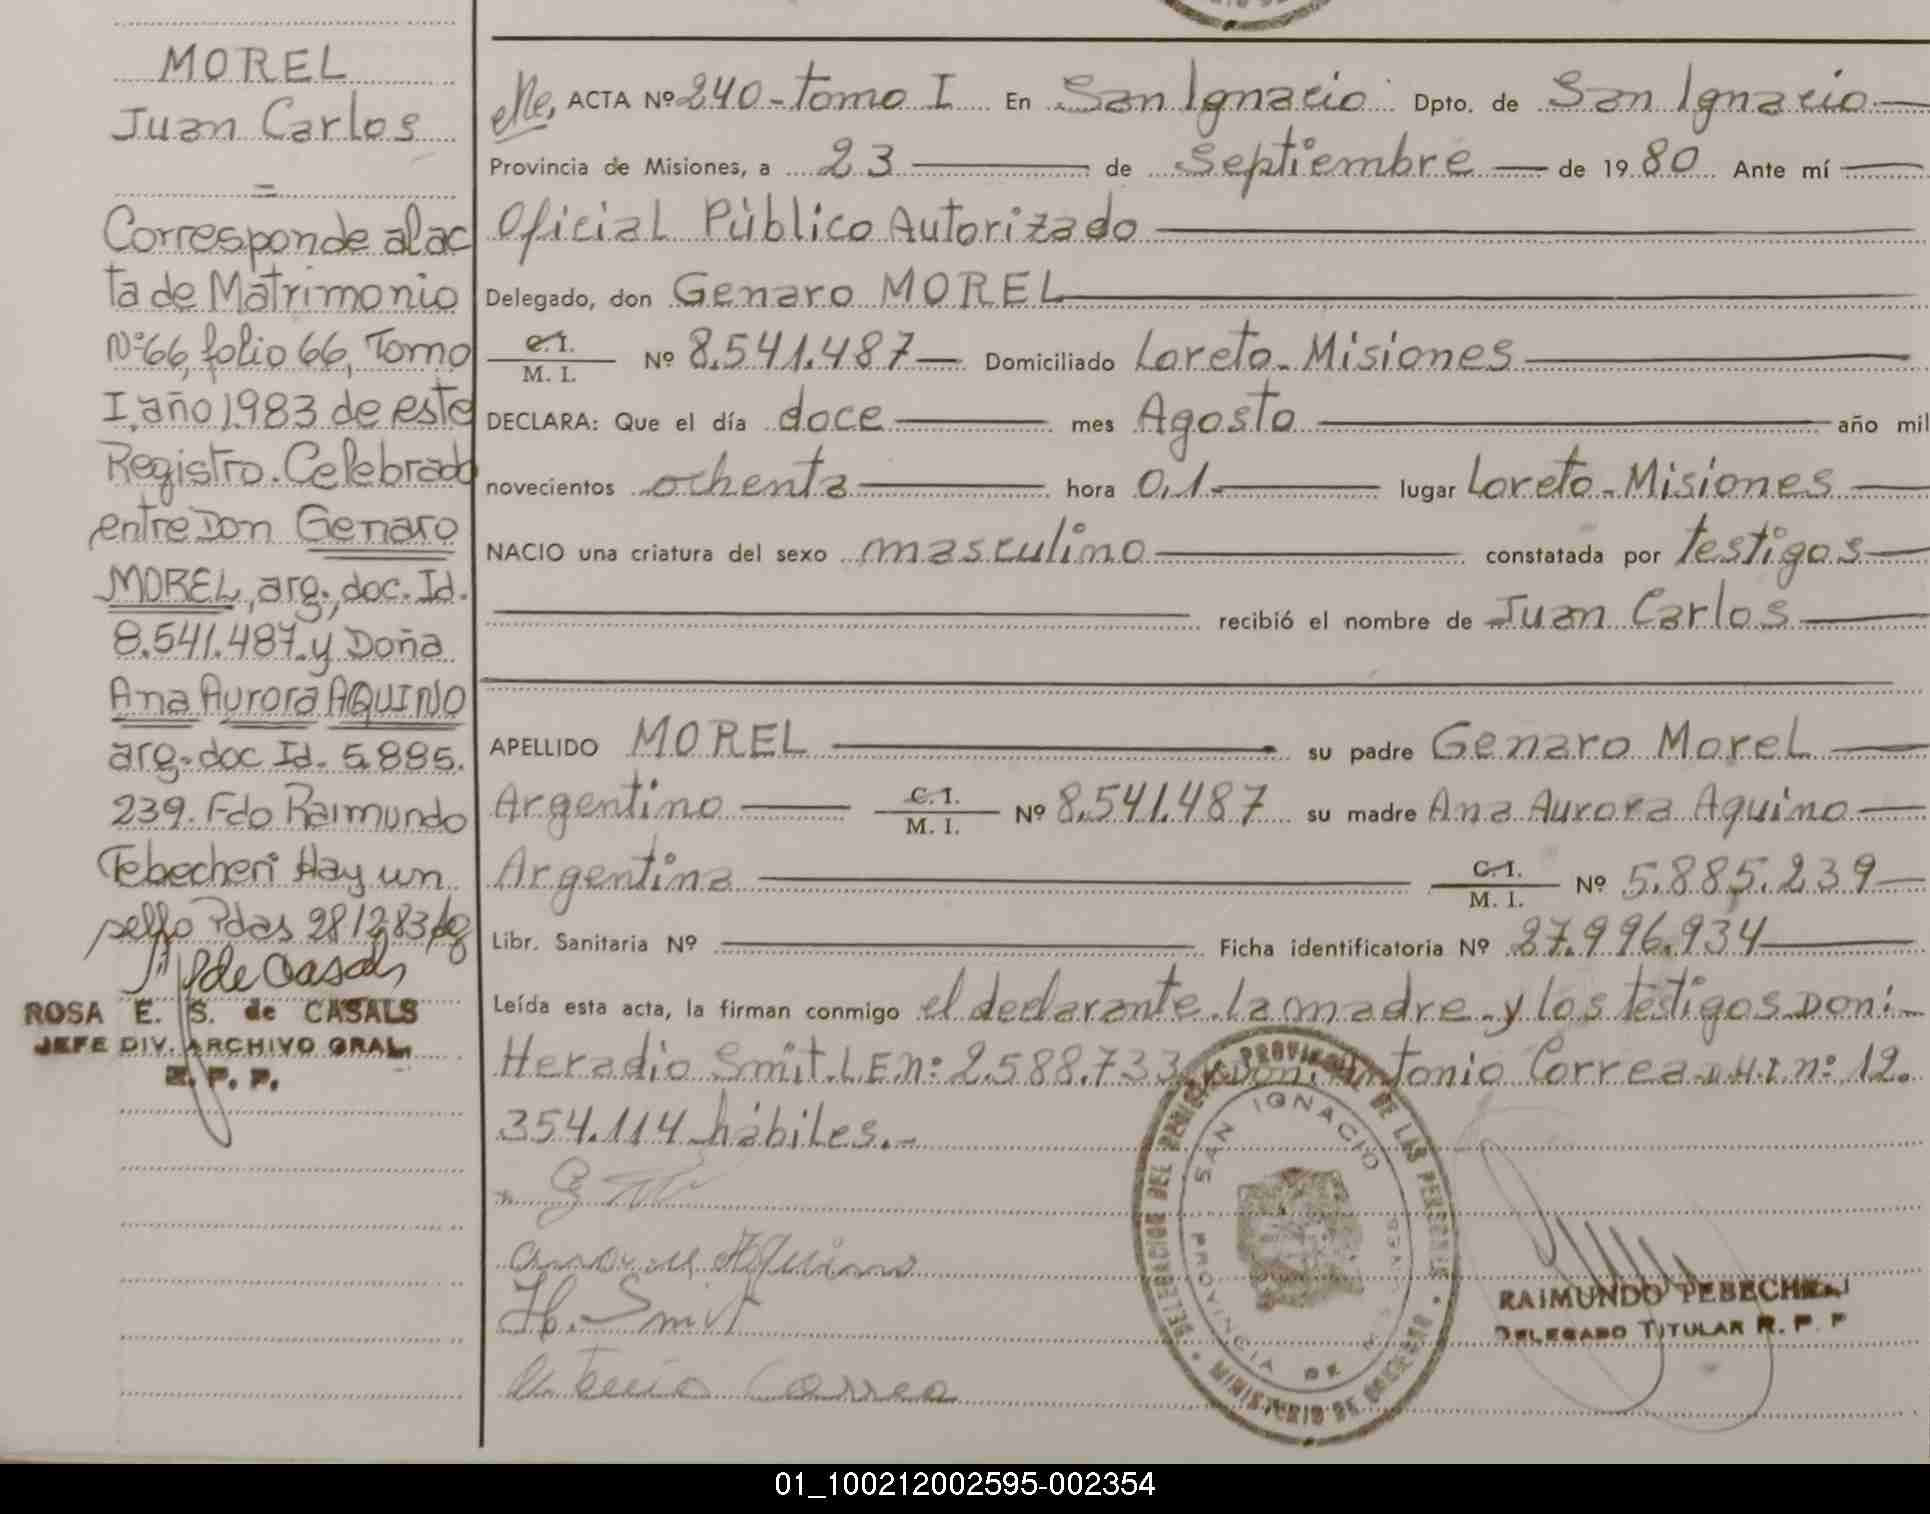 MOREL
Juan Carlos
=
Corresponde al ac
ta de Matrimonio
Nº66, folio 66, Tomo
I, año 1983 de este
Registro. Celebrado
entre Don Genaro
MOREL, arg., doc. Id.
8.541.487. y Doña
Ana Aurora AQUINO
arg. doc Id. 5.885.
239. Fdo Raimundo
Tebecheri Hay un
sello Pdas 281283
de Casals
ROSA E. S. de CASALS
JEFE DIV. ARCHIVO GRAL.
R. P. P.
ACTA Nº 240 - tomo I En San Ignacio Dpto. de San Ignacio
Provincia de Misiones, a 23 de Septiembre de 1980 Ante mí
Oficial Público Autorizado
Delegado, don Genaro MOREL
C.I.
M. I. Nº 8.541.487 Domiciliado Loreto - Misiones
DECLARA: Que el día doce mes Agosto año mil
novecientos ochenta hora 0,1.- lugar Loreto - Misiones
NACIO una criatura del sexo masculino constatada por testigos
recibió el nombre de Juan Carlos
APELLIDO MOREL su padre Genaro Morel
Argentino C.I. M. I. Nº 8.541.487 su madre Ana Aurora Aquino
Argentina C.I. M. I. Nº 5.885.239
Libr. Sanitaria Nº Ficha identificatoria Nº 27.996.934
Leída esta acta, la firman conmigo el declarante. la madre. y los testigos Don:
Heradio Smit. L E n: 2.588.733 y Don: Antonio Correa D.N.I. n: 12.
354.114 hábiles.-
Aquino
H. Smit
Antonio Correa
DELEGACION DEL REGISTRO PROVINCIAL DE LAS PERSONAS
MINISTERIO DE GOBIERNO
SAN IGNACIO
PROVINCIA DE MISIONES
RAIMUNDO TEBECHERI
DELEGADO TITULAR R. P. P
01_100212002595-002354